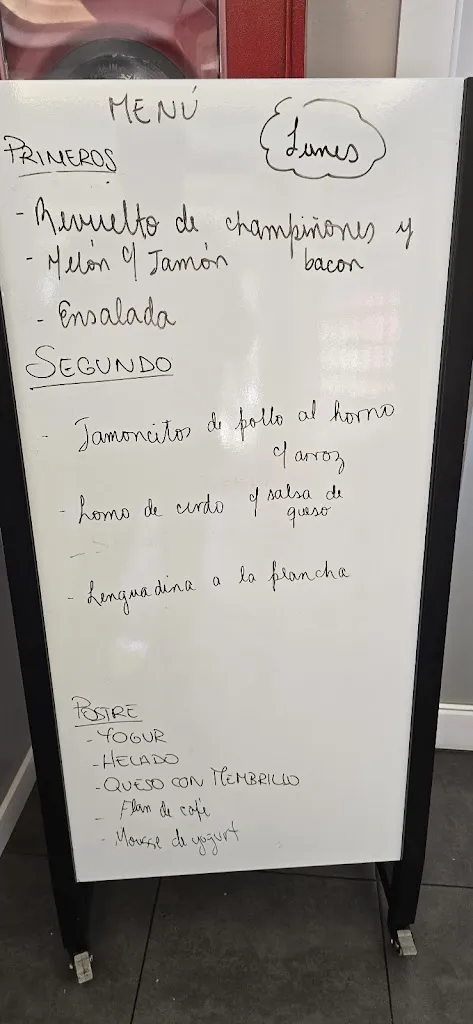 MENÚ
Lunes
PRIMEROS
- Revuelto de champiñones y
bacon
- Melón c/ Jamón
- Ensalada
SEGUNDO
- Jamoncitos de pollo al horno
c/ arroz
- Lomo de cerdo c/ salsa de
queso
- Lenguadina a la plancha
POSTRE
- YOGUR
- HELADO
- QUESO CON MEMBRILLO
- Flan de café
- Mousse de yogurt